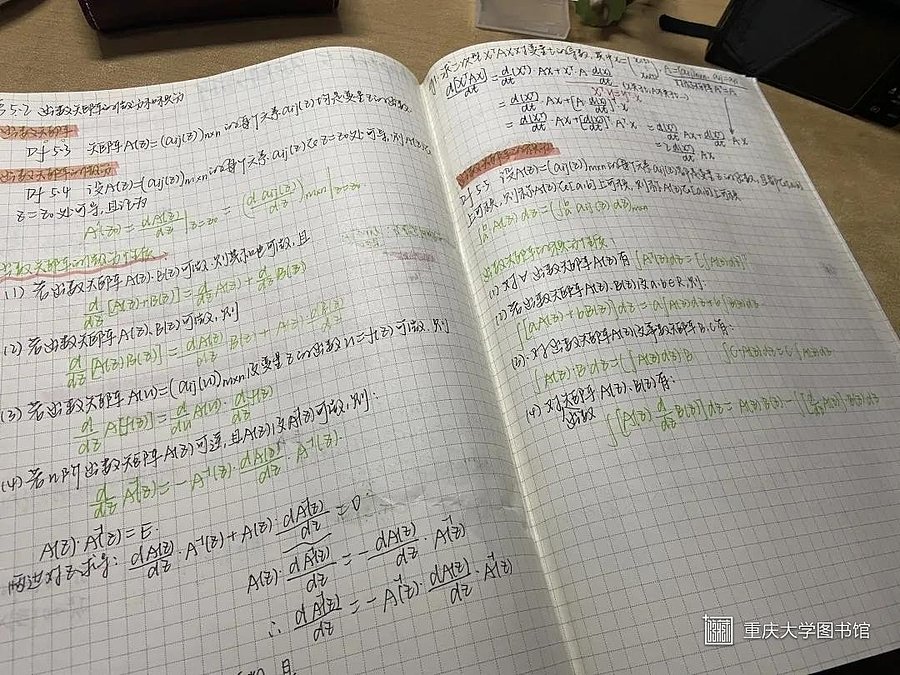 §5.2 函数矩阵的微分和积分
函数矩阵
Df 5.3 矩阵A(z)=(aij(z))m×n的每个元素aij(z)均是变量z的函数
函数矩阵的微分
Df 5.4 设A(z)=(aij(z))m×n的每个元素aij(z)在z=z₀处可导,则A(z)在
z=z₀处可导,且记为
A'(z₀)=dA(z)/dz|z=z₀=(d aij(z)/dz)m×n|z=z₀
(1) 若函数矩阵A(z)、B(z)可微,则其和也可微,且
d/dz[A(z)+B(z)]=d/dz A(z)+d/dz B(z)
(2) 若函数矩阵A(z)、B(z)可微,则
d/dz[A(z)B(z)]=d A(z)/dz B(z)+A(z)·dB(z)/dz
(3) 若函数矩阵A(u)=(aij(u))m×n及变量z的函数u=f(z)可微,则
d/dz A[f(z)]=d/du A(u)·d/dz f(z)
(4) 若n阶函数矩阵A(z)可逆,且A(z)及A⁻¹(z)可微,则:
d/dz A⁻¹(z)=-A⁻¹(z)·dA(z)/dz·A⁻¹(z).
A(z)·A⁻¹(z)=E.
两边对z求导: dA(z)/dz·A⁻¹(z)+A(z)·dA⁻¹(z)/dz=0.
A(z)·dA⁻¹(z)/dz=-dA(z)/dz·A⁻¹(z)
∴ dA⁻¹(z)/dz=-A⁻¹(z)·dA(z)/dz·A⁻¹(z)
求二次型XᵀAX对变量t的导数,其中
d[XᵀAX]/dt=d(Xᵀ)/dt·AX+Xᵀ·A d(X)/dt
=d(Xᵀ)/dt·AX+[A·d(X)/dt]ᵀ·X
=d(Xᵀ)/dt·AX+[d(X)/dt]ᵀ·Aᵀ·X
=d(Xᵀ)/dt AX+d(Xᵀ)/dt AX
=2 d(Xᵀ)/dt AX
Df 5.5 设A(z)=(aij(z))m×n的每个元素aij(z)都是变量z的函数,且
上可积,则称A(z)在[a,b]上可积
∫A(z)dz=(∫aij(z)dz)m×n
(1) 对∀函数矩阵A(z)有 ∫Aᵀ(z)dz=[∫A(z)dz]ᵀ
(2) 若函数矩阵A(z)、B(z)及a,b∈R,则:
∫[aA(z)+bB(z)]dz=a∫A(z)dz+b∫B(z)dz
(3). 对函数矩阵A(z)及常数矩阵B,C有:
∫A(z)·B dz=(∫A(z)dz)·B ∫C·A(z)dz=C∫A(z)dz
(4) 对函数矩阵A(z)、B(z)有:
∫[A(z) d/dz B(z)]dz=A(z)B(z)-∫[d/dz A(z)]·B(z)dz
重庆大学图书馆